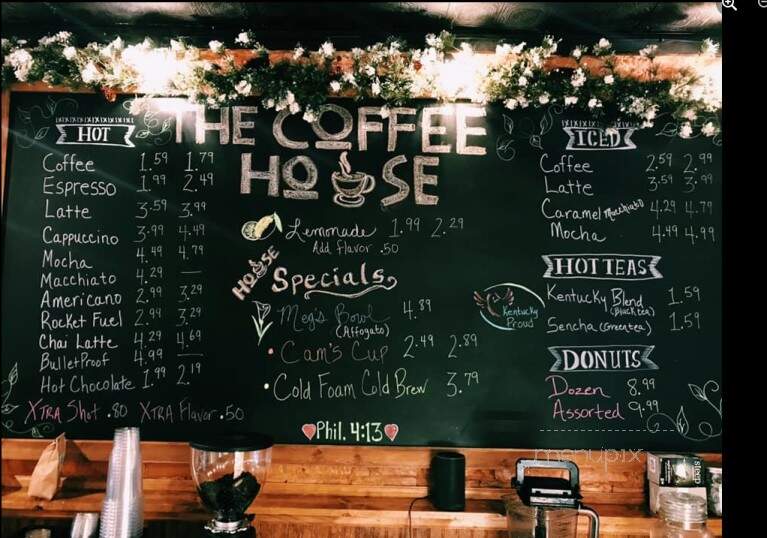 THE COFFEE
HOUSE
HOT
Coffee 1.59 1.79
Espresso 1.99 2.49
Latte 3.59 3.99
Cappuccino 3.99 4.49
Mocha 4.49 4.79
Macchiato 4.29 —
Americano 2.99 3.29
Rocket Fuel 2.99 3.29
Chai Latte 4.29 4.69
BulletProof 4.99 —
Hot Chocolate 1.99 2.19
XTRA Shot .80 XTRA Flavor .50
Lemonade 1.99 2.29
Add flavor .50
HOUSE Specials
Meg's Bowl 4.89
(Affogato)
• Cam's Cup 2.49 2.89
• Cold Foam Cold Brew 3.79
Phil. 4:13
Kentucky
Proud
ICED
Coffee 2.59 2.99
Latte 3.59 3.99
Caramel Macchiato 4.29 4.79
Mocha 4.49 4.99
HOT TEAS
Kentucky Blend 1.59
(Black tea)
Sencha (Green tea) 1.59
DONUTS
Dozen 8.99
Assorted 9.99
menupix